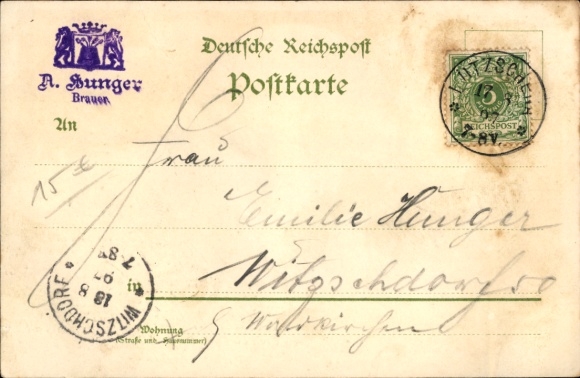 Deutsche Reichspost
Postkarte
A. Hunger
Brauer.
5
REICHSPOST
LÜTZSCHENA
8-V.
An
Frau
15
Emilie Hunger
in Witzschdorf
WITZSCHDORF
18 8
97
7-8V
Wohnung
(Straße und Hausnummer)
Waldkirchen